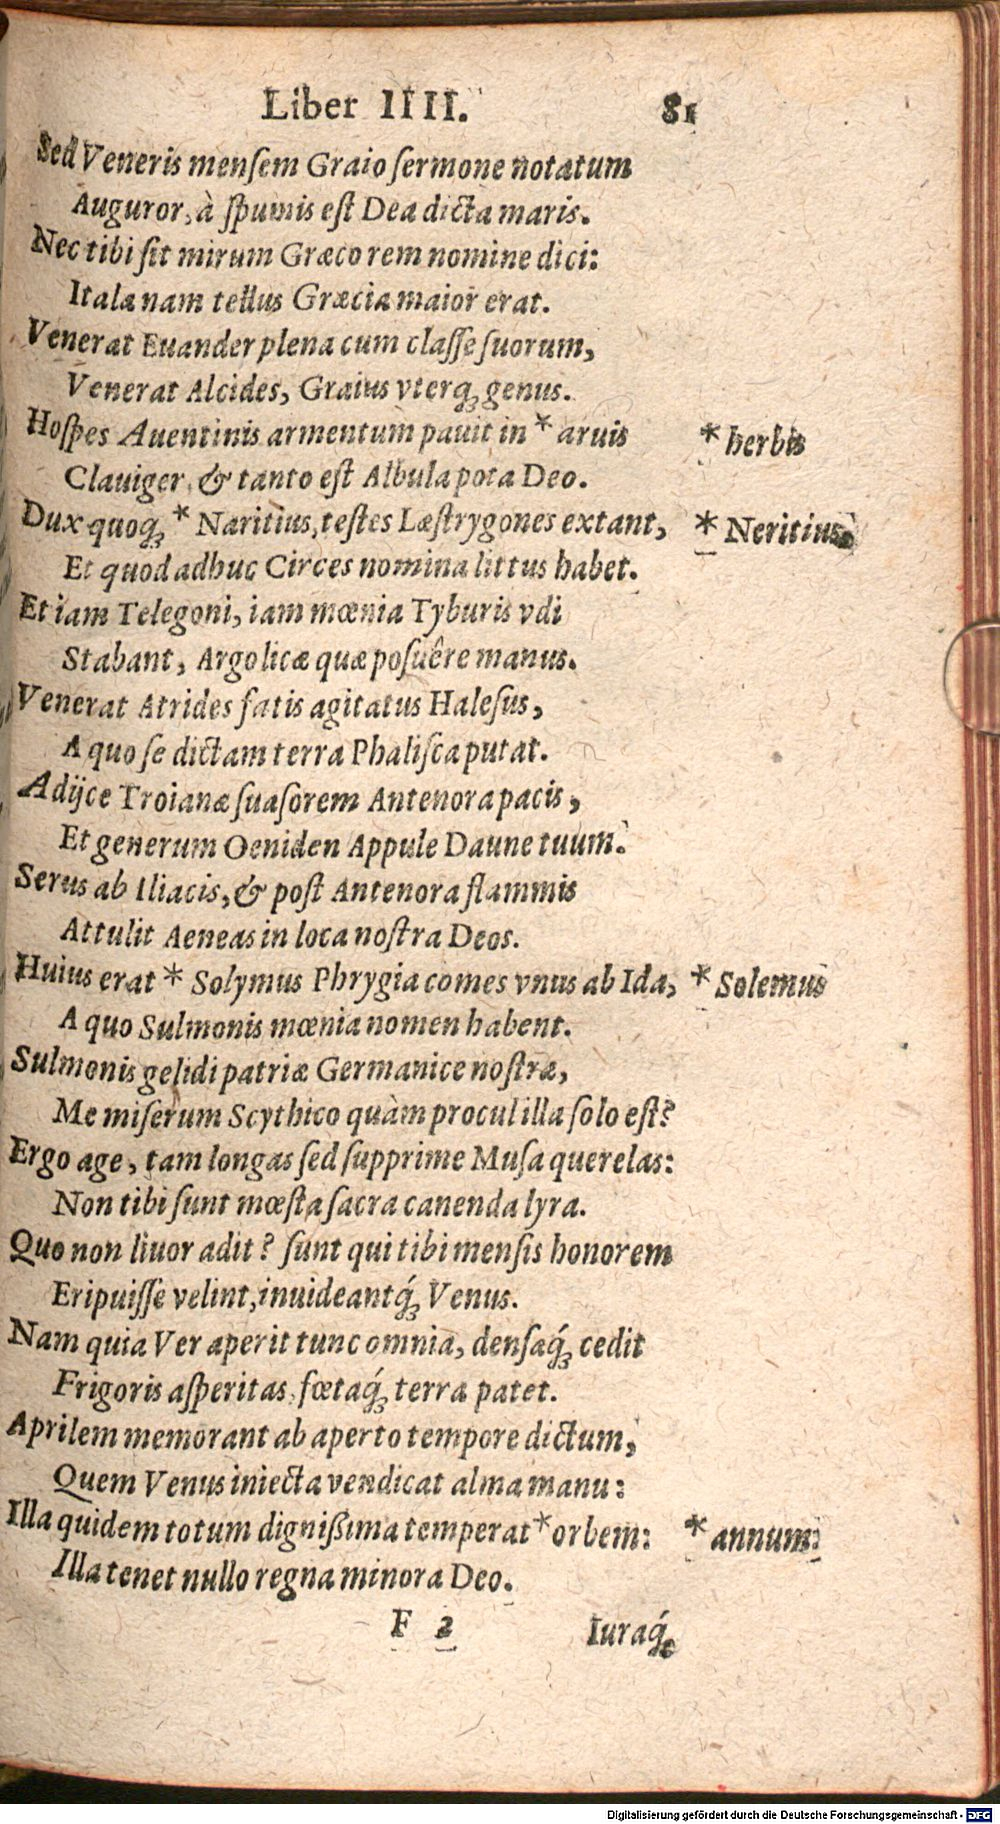 Liber IIII. 81
Sed Veneris menſem Graio ſermone notatum
Auguror, à ſpumis eſt Dea dicta maris.
Nec tibi ſit mirum Græco rem nomine dici:
Itala nam tellus Græcia maior erat.
Venerat Euander plena cum claſſe ſuorum,
Venerat Alcides, Graius vterq; genus.
Hoſpes Auentinis armentum pauit in * aruis * herbis
Clauiger, & tanto eſt Albula pota Deo.
Dux quoq; * Naritius, teſtes Læſtrygones extant, * Neritius
Et quod adhuc Circes nomina littus habet.
Et iam Telegoni, iam mœnia Tyburis vdi
Stabant, Argolicæ quæ poſuêre manus.
Venerat Atrides fatis agitatus Haleſus,
A quo ſe dictam terra Phaliſca putat.
Adijce Troianæ ſuaſorem Antenora pacis,
Et generum Oeniden Appule Daune tuum.
Serus ab Iliacis, & poſt Antenora flammis
Attulit Aeneas in loca noſtra Deos.
Huius erat * Solymus Phrygia comes vnus ab Ida, * Solemus
A quo Sulmonis mœnia nomen habent.
Sulmonis gelidi patriæ Germanice noſtræ,
Me miſerum Scythico quàm procul illa ſolo eſt?
Ergo age, tam longas ſed ſupprime Muſa querelas:
Non tibi ſunt mœſta ſacra canenda lyra.
Quo non liuor adit? ſunt qui tibi menſis honorem
Eripuiſſe velint, inuideantq́; Venus.
Nam quia Ver aperit tunc omnia, denſaq́; cedit
Frigoris aſperitas, fœtaq́; terra patet.
Aprilem memorant ab aperto tempore dictum,
Quem Venus iniecta vendicat alma manu:
Illa quidem totum dignißima temperat * orbem: * annum:
Illa tenet nullo regna minora Deo.
F 2 Iuraq́;
Digitalisierung gefördert durch die Deutsche Forschungsgemeinschaft - DFG